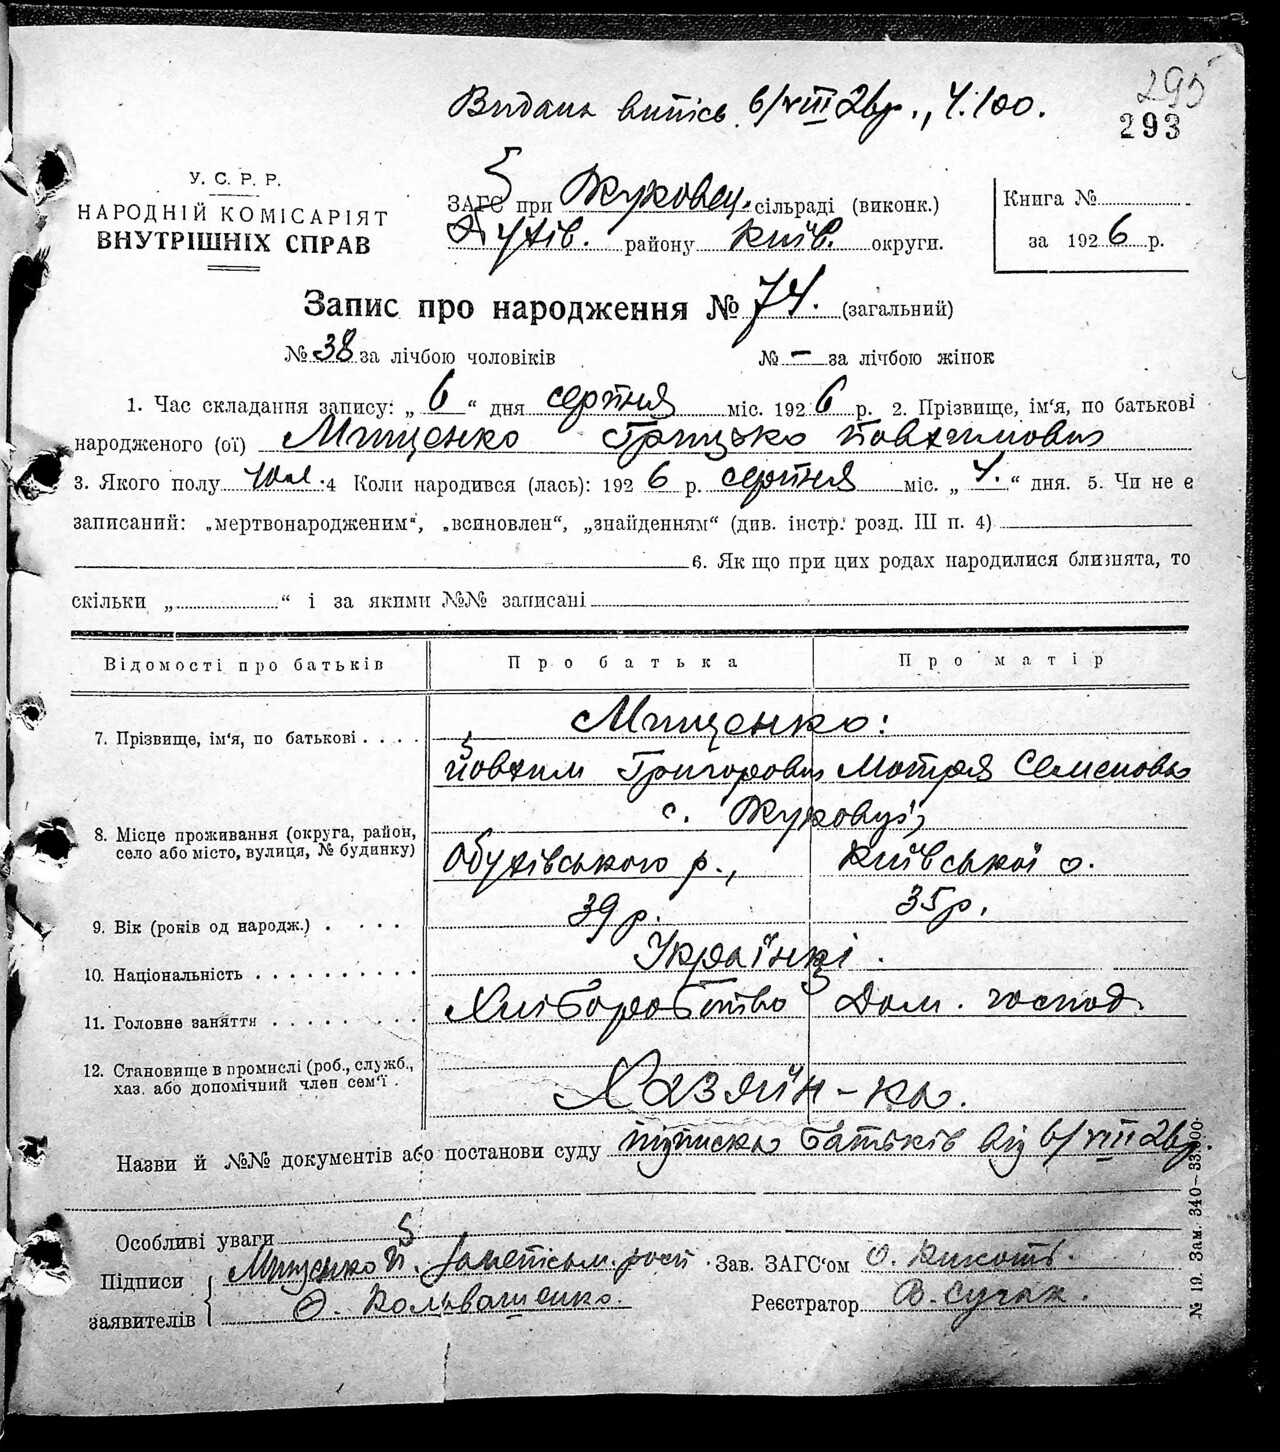 295
Видана випісь 6/VIII 26р., Ч. 100.
293
У. С. Р. Р.
НАРОДНІЙ КОМІСАРІЯТ
ВНУТРІШНІХ СПРАВ
ЗАГС при Жуковец. сільраді (виконк.)
району Київ. округи.
Книга №
за 1926 р.
Запис про народження № 74. (загальний)
№ 38 за лічбою чоловіків № — за лічбою жінок
1. Час складання запису: „ 6 “ дня серпня міс. 1926 р. 2. Прізвище, ім‘я, по батькові
народженого (ої) Мищенко Грицько Йовхимович
3. Якого полу чол. 4 Коли народився (лась): 1926 р. серпня міс. „ 4. “ дня. 5. Чи не є
записаний: „мертвонародженим“, „всиновлен“, „знайденням“ (див. інстр. розд. III п. 4)
6. Як що при цих родах народилися близнята, то
скільки „ “ і за якими №№ записані
Відомості про батьків Про батька Про матір
7. Прізвище, ім‘я, по батькові . . . . Мищенко:
Йовхим Григорович Мотря Семеновна
8. Місце проживання (округа, район, село або місто, вулиця, № будинку) с. Жуковці,
Обухівського р., Київської о.
9. Вік (років од народж.) . . . . 39 р. 35 р.
10. Національність . . . . . . . . . . Українці.
11. Головне заняття . . . . . . . . . Хліборобство Дом. господ.
12. Становище в промислі (роб., служб.,
хаз. або допомічний член сем‘ї . Хазяїн-ка.
Назви й №№ документів або постанови суду підписка батьків від 6/VIII 26р.
Особливі уваги
Підписи заявителів Мищенко Й. Зав. ЗАГС‘ом О.
Реєстратор В.
№ 19. Зам. 340—33.000